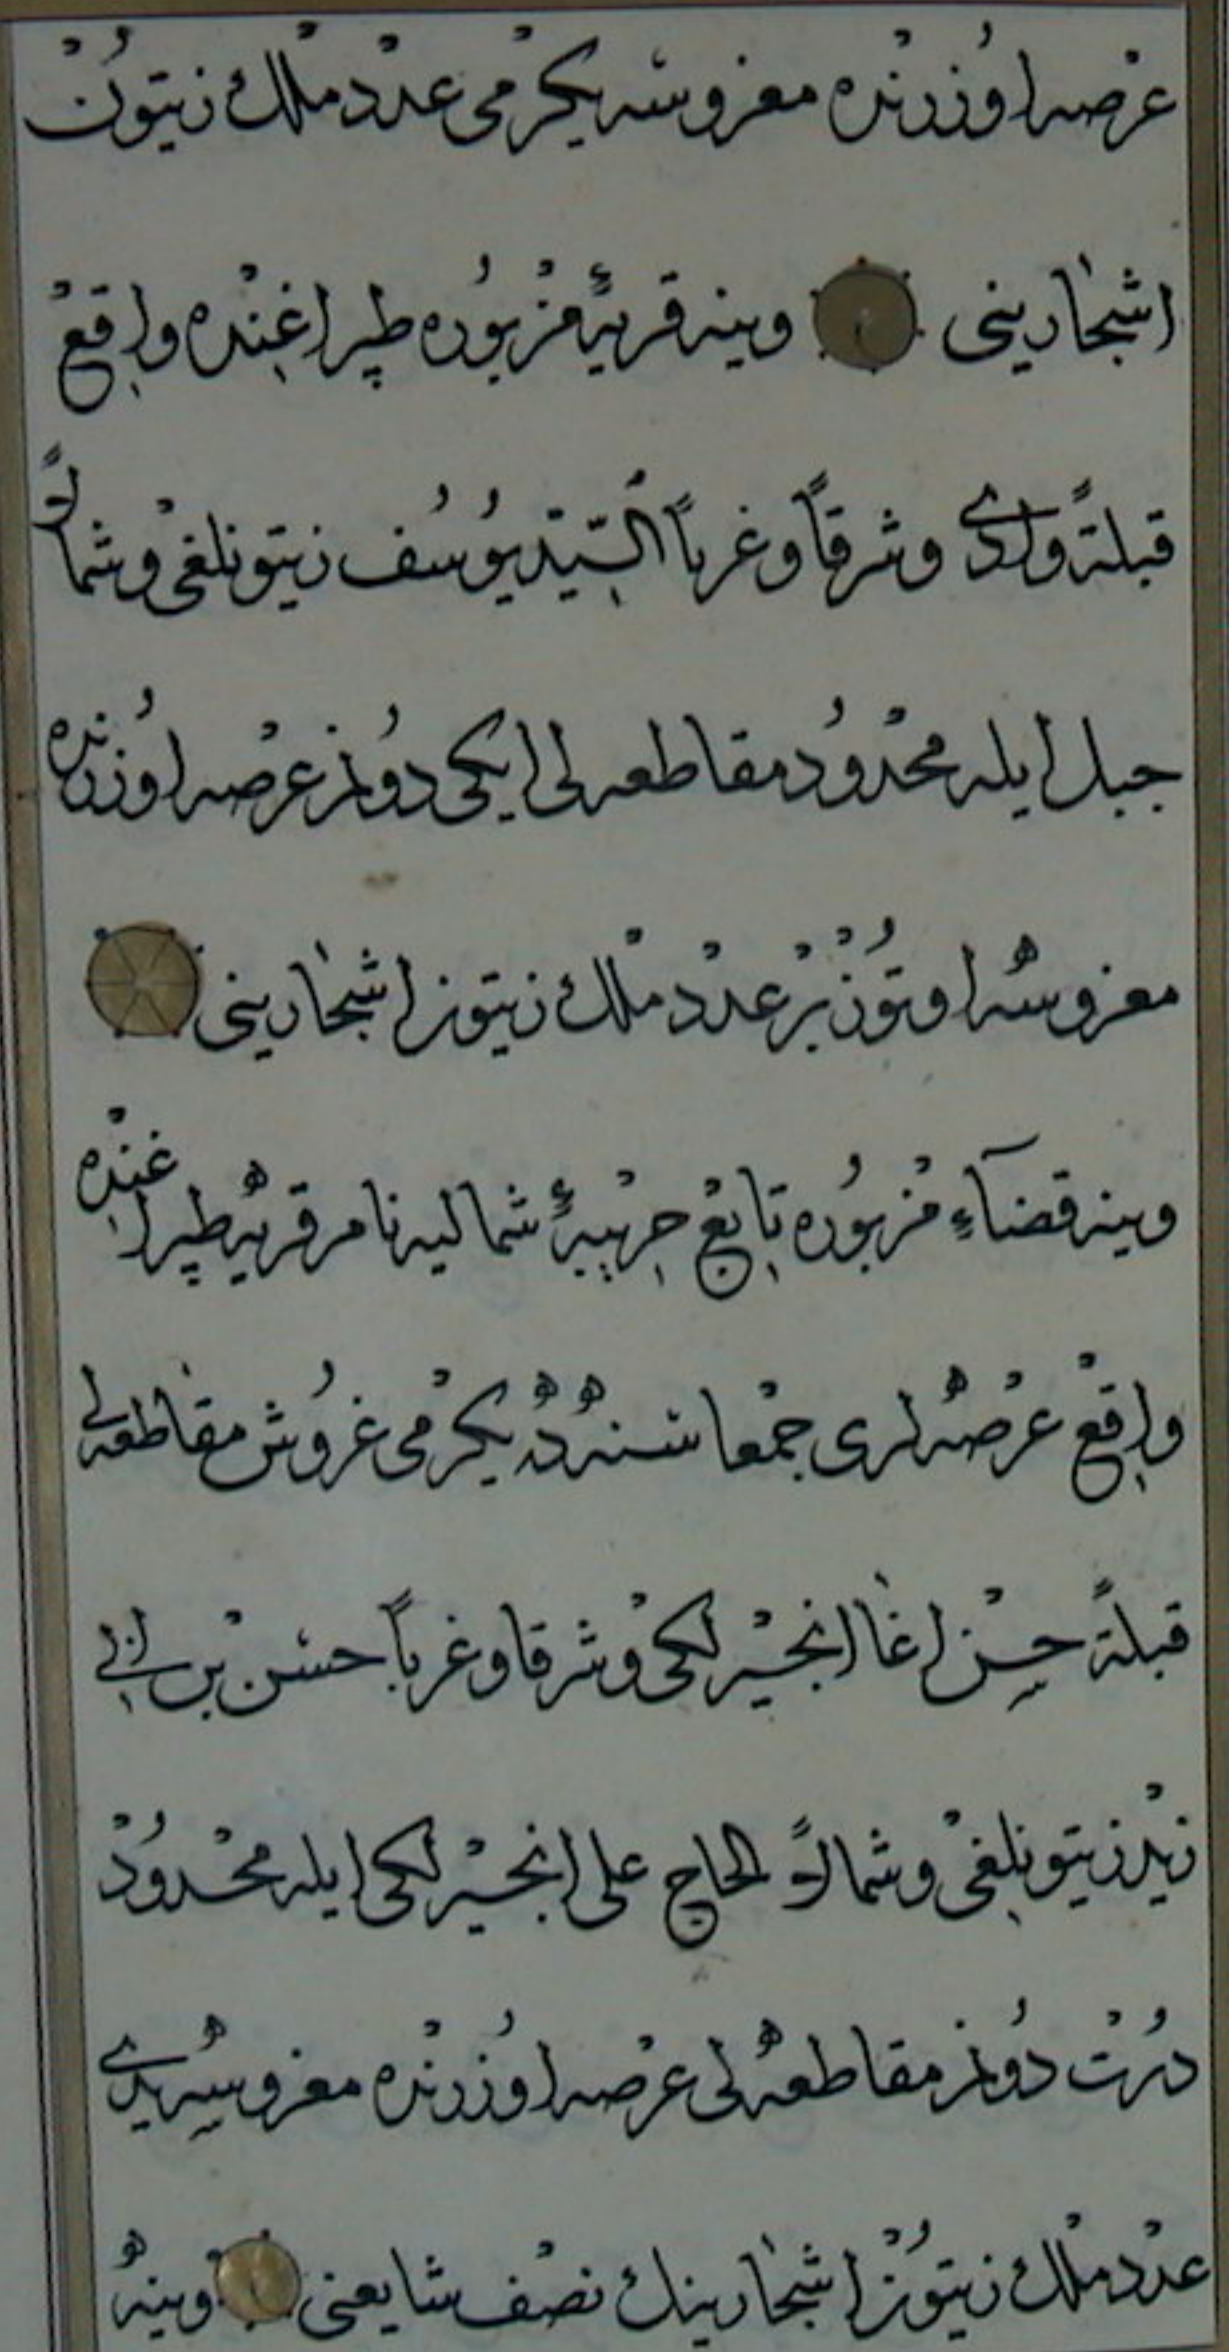 عرصه اوزرنده مغروسه یکرمی عدد ملك زیتون
اشجارینی وینه قریۀ مزبوره طپراغنده واقع
قبلةً وادی وشرقاً وغرباً السیّد یوسف زیتونلغی وشمالاً
جبل ایله محدود مقاطعه لی ایکی دونم عرصه اوزرنده
مغروسه اوتوز بر عدد ملك زیتون اشجارینی
وینه قضاء مزبوره تابع شمالیه نام قریه طپراغنده
واقع عرصه لری جمعا سنه ده یکرمی غروش مقاطعه لی
قبلةً حسن اغا انجیرلکی وشرقا وغرباً حسن بن ابی
زید زیتونلغی وشمالاً الحاج علی انجیرلکی ایله محدود
درت دونم مقاطعه لی عرصه اوزرنده مغروسه یدی
عدد ملك زیتون اشجارینك نصف شایعنی وینه